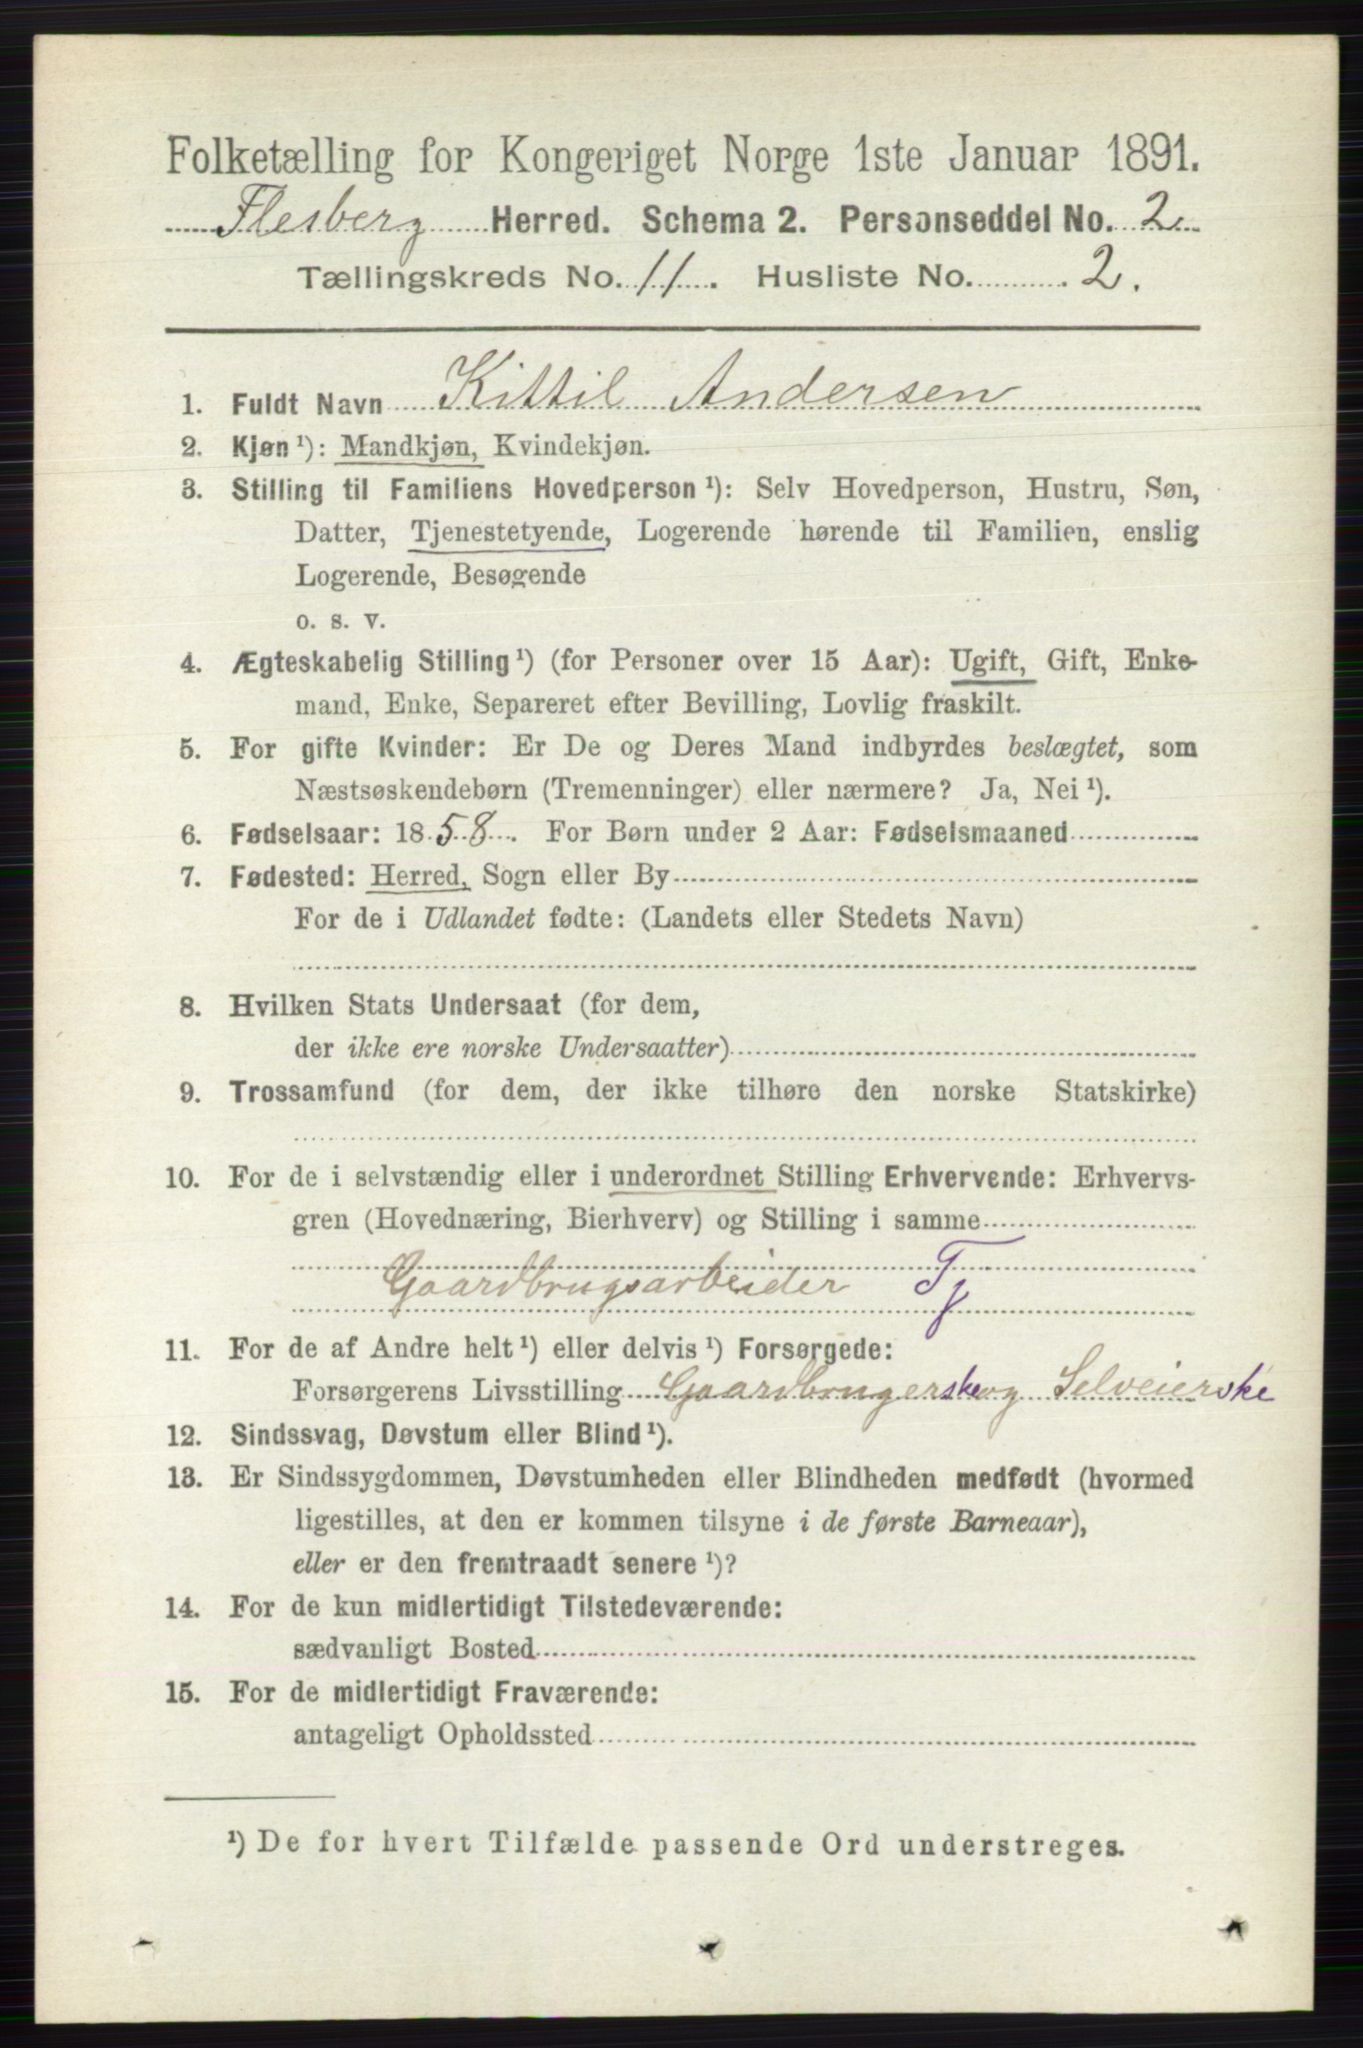 Folketælling for Kongeriget Norge 1ste Januar 1891.
Flesberg Herred. Schema 2. Personseddel No. 2
Tællingskreds No. 11. Husliste No. 2.
1. Fuldt Navn Kittil Andersen
2. Kjøn ¹): Mandkjøn, Kvindekjøn.
3. Stilling til Familiens Hovedperson ¹): Selv Hovedperson, Hustru, Søn,
Datter, Tjenestetyende, Logerende hørende til Familien, enslig
Logerende, Besøgende
o. s. v.
4. Ægteskabelig Stilling ¹) (for Personer over 15 Aar): Ugift, Gift, Enke-
mand, Enke, Separeret efter Bevilling, Lovlig fraskilt.
5. For gifte Kvinder: Er De og Deres Mand indbyrdes beslægtet, som
Næstsøskendebørn (Tremenninger) eller nærmere? Ja, Nei ¹).
6. Fødselsaar: 1858. For Børn under 2 Aar: Fødselsmaaned
7. Fødested: Herred, Sogn eller By
For de i Udlandet fødte: (Landets eller Stedets Navn)
8. Hvilken Stats Undersaat (for dem,
der ikke ere norske Undersaatter)
9. Trossamfund (for dem, der ikke tilhøre den norske Statskirke)
10. For de i selvstændig eller i underordnet Stilling Erhvervende: Erhvervs-
gren (Hovednæring, Bierhverv) og Stilling i samme
Gaardbrugsarbeider Tj
11. For de af Andre helt ¹) eller delvis ¹) Forsørgede:
Forsørgerens Livsstilling Gaardbrugerske og Selveierske
12. Sindssvag, Døvstum eller Blind ¹).
13. Er Sindssygdommen, Døvstumheden eller Blindheden medfødt (hvormed
ligestilles, at den er kommen tilsyne i de første Barneaar),
eller er den fremtraadt senere ¹)?
14. For de kun midlertidigt Tilstedeværende:
sædvanligt Bosted
15. For de midlertidigt Fraværende:
antageligt Opholdssted
¹) De for hvert Tilfælde passende Ord understreges.